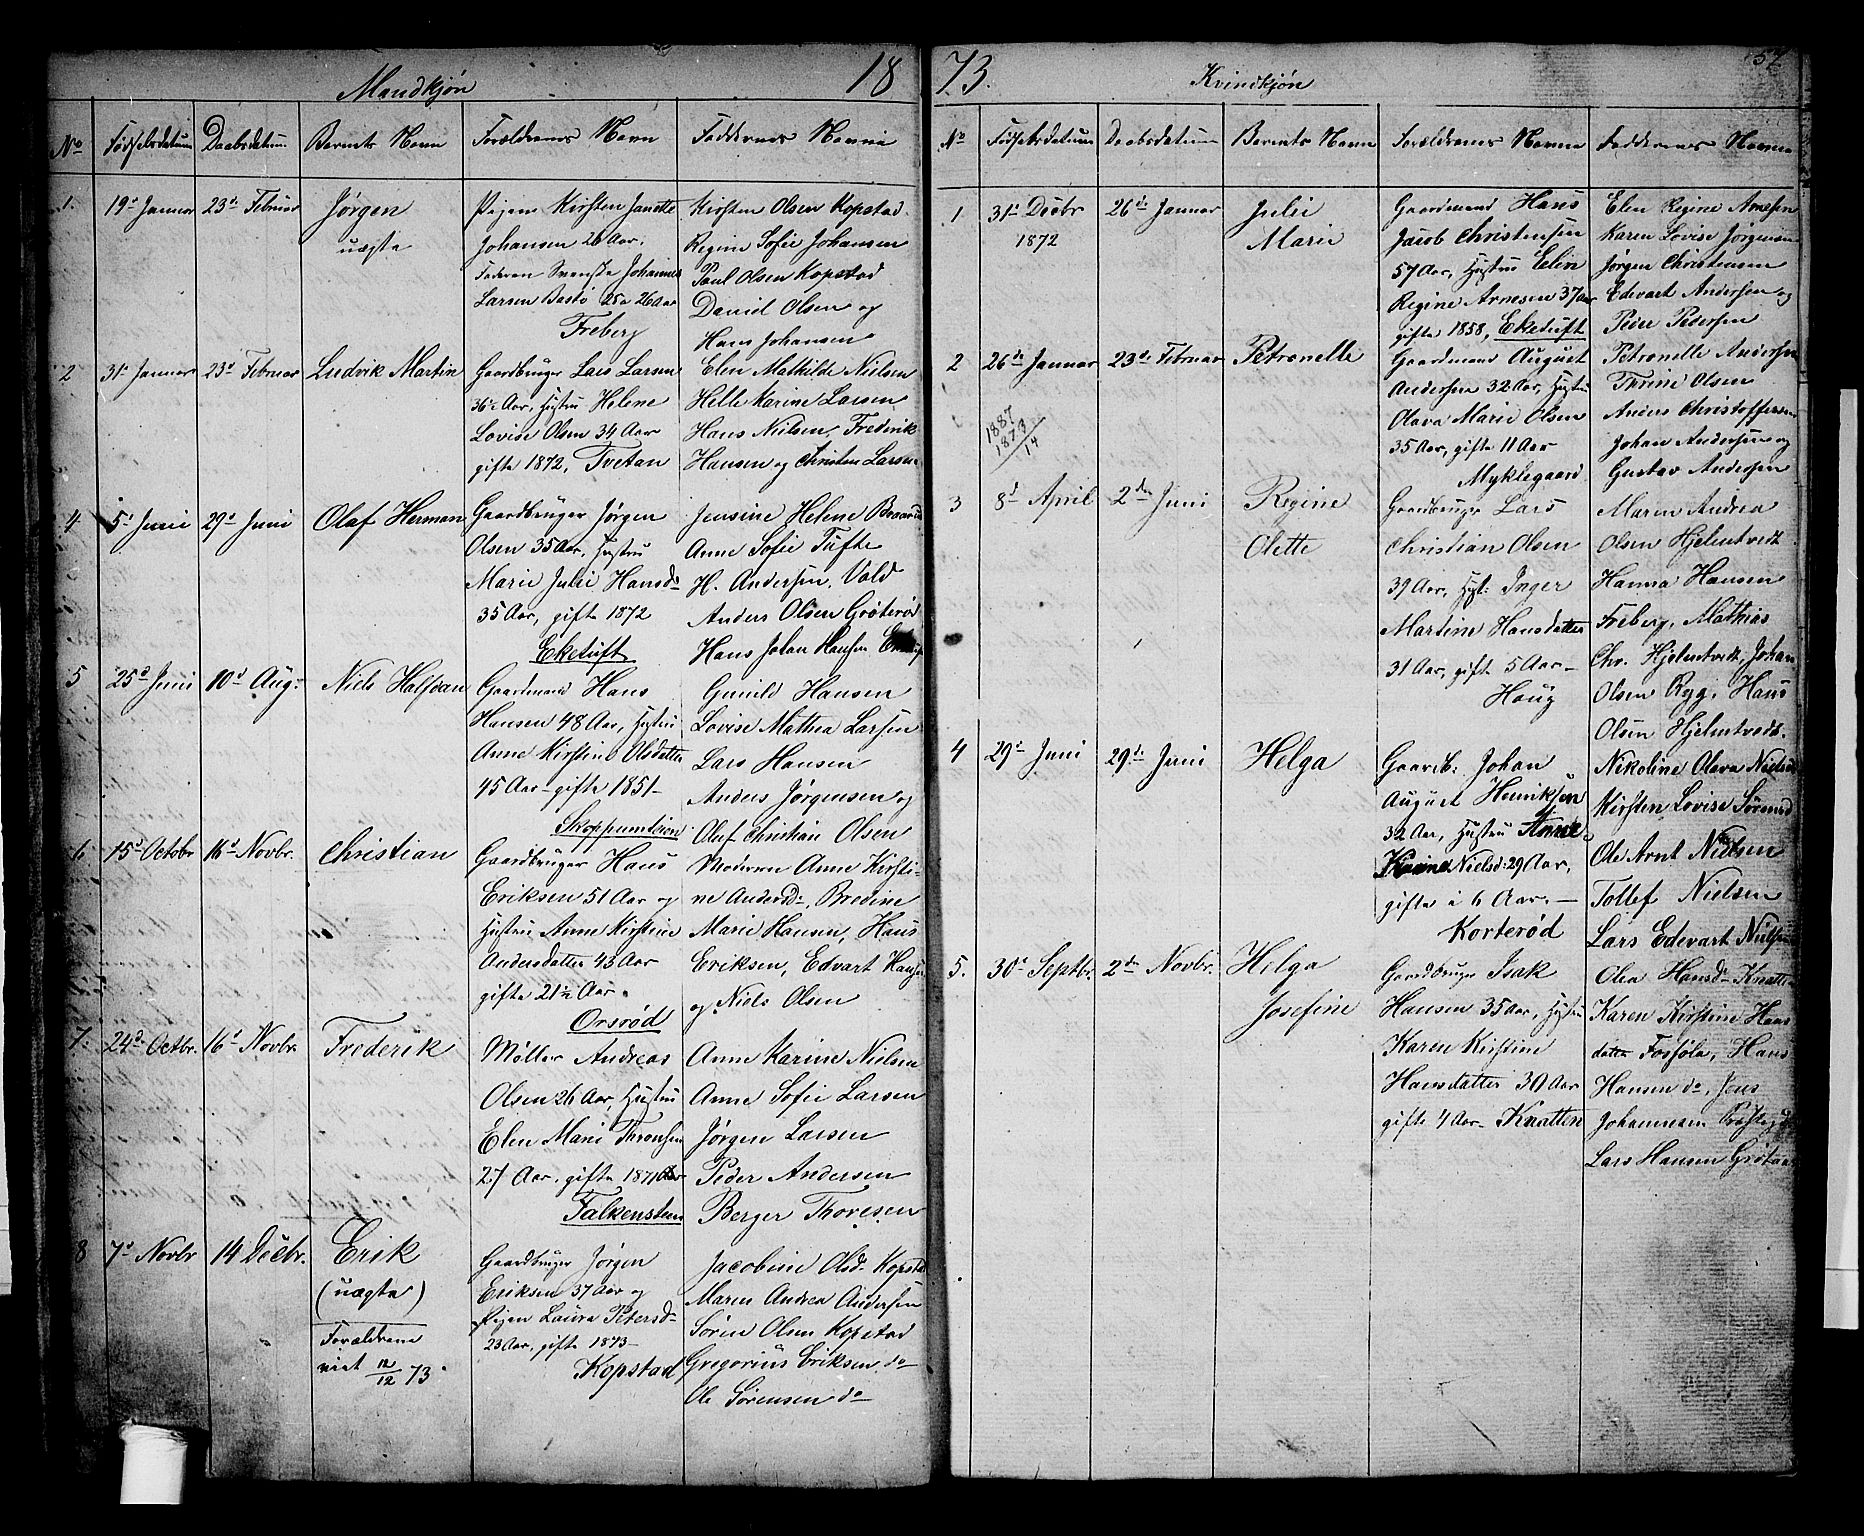 18 73.
57
Mandkjøn
No Fødselsdatum Daabsdatum Barnets Navn Forældrenes Navn Faddernes Navne
1. 19d Januar 23d Februar Jørgen
uægte
Pigen Kirsten Janette
Johansen 26 Aar.
Faderen Svenske Johannes
Larsen Bastø 25 a 26 Aar
Freberg
Kirsten Olsen Kopstad
Regine Sofie Johansen
Paul Olsen Kopstad
Daniel Olsen og
Hans Johansen
2 31d Januar 23d Februar Ludvik Martin
Gaardbruger Lars Larsen
36 Aar, Hustru Helene
Lovise Olsen 34 Aar
gifte 1872, Tvetan
Elen Mathilde Nielsen
Helle Karine Larsen
Hans Nielsen, Frederik
Hansen og Christen Larsen
4 5d Juni 29d Juni Olaf Herman
Gaardbruger Jørgen
Olsen 35 Aar, Hustru
Marie Julie Hansd:
35 Aar, gifte 1872
Eketuft
Jensine Helene
Anne Sofie Tufte
H. Andersen, Vold
Anders Olsen Grøterød
Hans Johan Hansen
5 25d Juni 10d Aug: Niels Halfdan
Gaardmand Hans
Hansen 48 Aar, Hustru
Anne Kirstine Olsdatter
45 Aar - gifte 1851 -
Skoppumteien
Gunild Hansen
Lovise Mathea Larsen
Lars Hansen
Anders Jørgensen og
Oluf Christian Olsen
6 15d Octobr 16d Novbr. Christian
Gaardbruger Hans
Eriksen 51 Aar og
Hustru Anne Kirstine
Andersdatter 43 Aar
gifte 21½ Aar.
Orsrød
Moderen Anne Kirsti-
ne Andersd:, Bredine
Marie Hansen, Hans
Eriksen, Edvart Hansen
og Niels Olsen
7. 24d Octbr. 16d Novbr. Frederik
Møller Andreas
Olsen 26 Aar, Hustru
Elen Marie Thronsen
27 Aar, gifte 1871
Falkensteen
Anne Karine Nielsen
Anne Sofie Larsen
Jørgen Larsen
Peder Andersen
Berger Thoresen
8 7d Novbr 14 Decbr. Erik
(uægte)
Forældrene
viet 12/12 73.
Gaardbruger Jørgen
Eriksen 37 Aar og
Pigen Laura Petersd:
23 Aar, gifte 1873 -
Kopstad
Jacobine Olsd: Kopstad
Maren Andrea Andersen
Søren Olsen Kopstad
Gregorius Eriksen do
Ole Sørensen do
Kvindkjøn
No Fødselsdatum Daabsdatum Barnets Navn Forældrenes Navne Faddernes Navne
1 31d Decbr 26de Januar Julie
1872 Marie
Gaardmand Hans
Jacob Christensen
57 Aar, Hustru Elin
Regine Arnesen 37 Aar
gifte 1858, Eketuft
Elen Regine Arnesen
Karen Lovise Jørgensen
Jørgen Christensen
Edevart Andersen og
Peder Pedersen
2 26de Januar 23d Februar Petronelle
1887
1873
14
Gaardmand August
Andersen 32 Aar, Hustru
Olava Marie Olsen
35 Aar, gifte 11 Aar
Myklegaard
Petronelle Andersen
Thrine Olsen
Anders Christoffersen
Johan Andersen og
Gustav Andersen
3 8d April 2den Juni Regine
Olette
Gaardbruger Lars
Christian Olsen
39 Aar, Hust: Inger
Martine Hansdatter
31 Aar, gifte 5 Aar -
Houg
Maren Andrea
Olsen Hjelmtvedt
Hanna Hansen
Freberg, Mathias
Chr. Hjelmtvedt, Johan
Olsen Ryg, Hans
Olsen Hjelmtvedt.
4 29d Juni 29d Juni Helga
Gaardb: Johan
August Henriksen
32 Aar, Hustru Anne
Karine Nielsd: 29 Aar,
gifte i 6 Aar. -
Korterød
Nikoline Olava Nielsd
Kirsten Lovise Sørensd
Ole Arnt Nielsen
Tollef Nielsen
Lars Edevart Nielsen
5. 30d Septbr. 2den Novbr. Helga
Josefine
Gaardbruger Isak
Hansen 35 Aar, Hustru
Karen Kirstine
Hansdatter 30 Aar
gifte 4 Aar - Knatten
Olea Hansd: Knatten
Karen Kirstine Hans
datter Fossøle, Hans
Hansen do, Jens
Johannesen
Lars Hansen